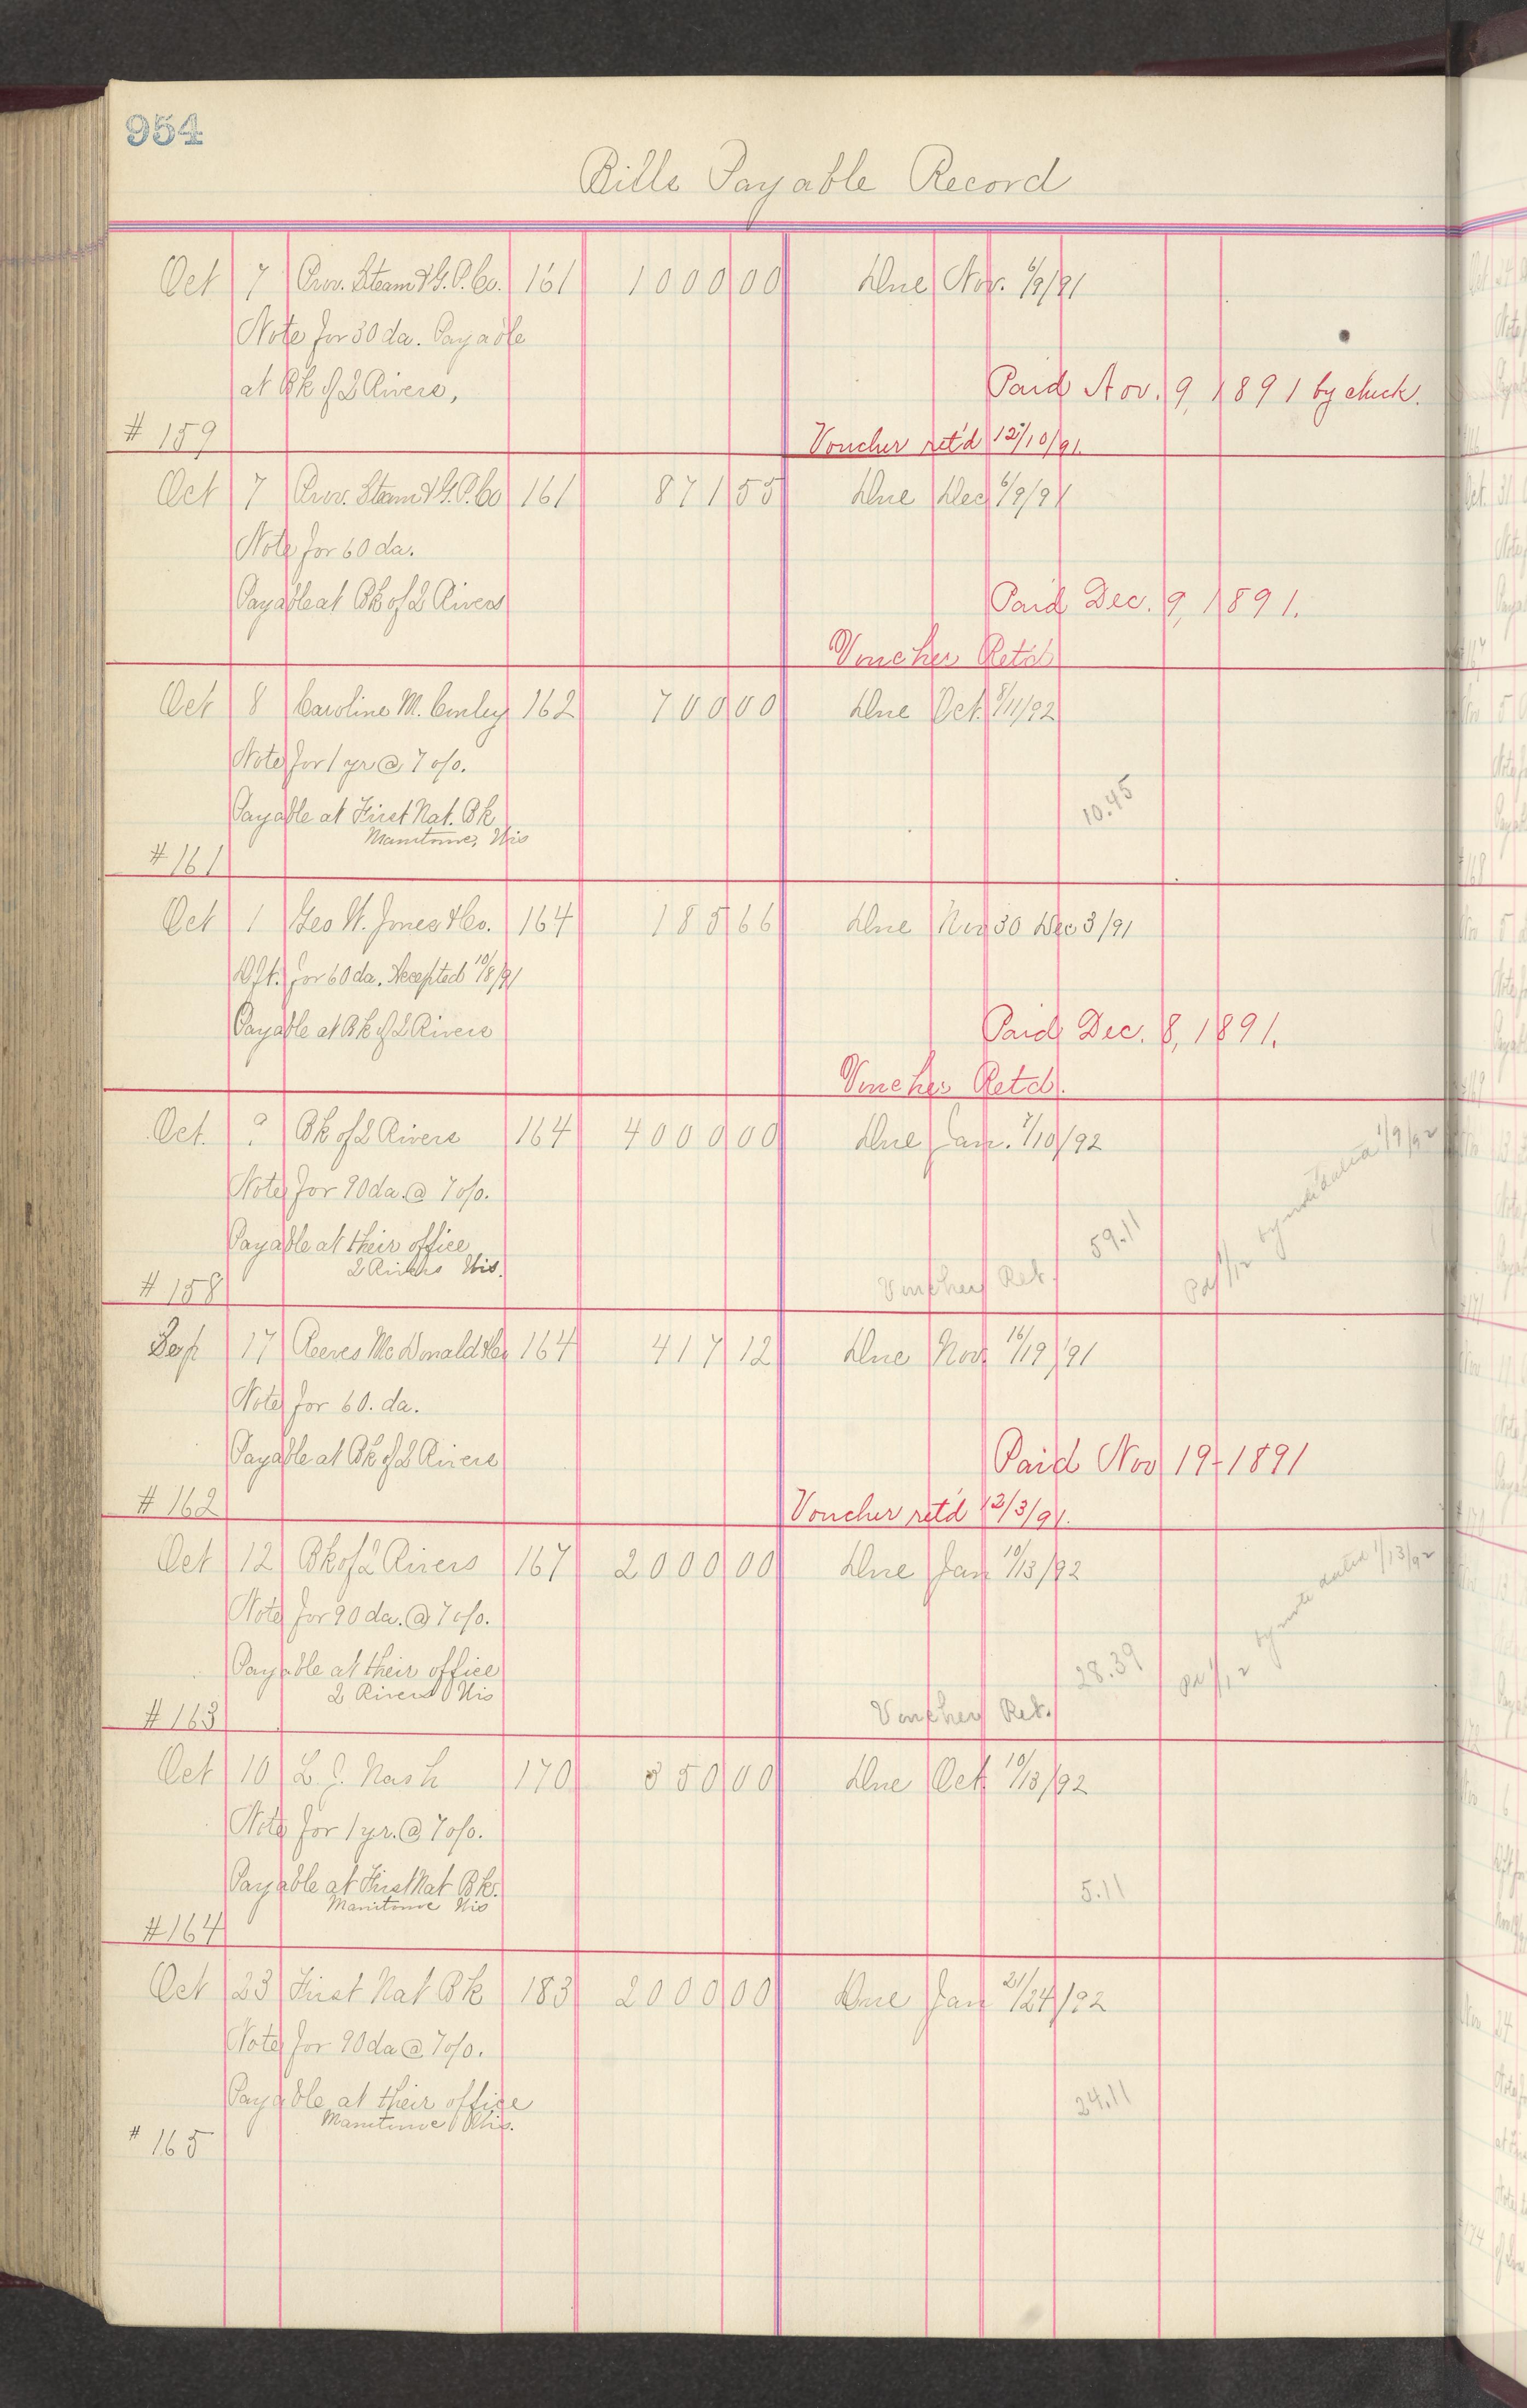 954
Bills Payable Record
Oct 7 Prov. Steam & G. P. Co. 161 1000 00 Due Nov. 6/9/91
Note for 30 da. Payable
at Bk of 2 Rivers, Paid Nov. 9, 1891 by check.
# 159 Voucher ret'd 12/10/91.
Oct 7 Prov. Steam & G. P. Co 161 871 55 Due Dec 6/9/91
Note for 60 da.
Payable at Bk of 2 Rivers Paid Dec. 9, 1891.
Voucher Ret'd
Oct 8 Caroline M. Conley 162 700 00 Due Oct. 8/11/92
Note for 1 yr @ 7 o/o.
Payable at First Nat. Bk 10.45
Manitowoc, Wis
# 161
Oct 1 Geo W. Jones & Co. 164 185 66 Due Nov 30 Dec 3/91
Dft. for 60 da. Accepted 10/8/91
Payable at Bk of 2 Rivers Paid Dec. 8, 1891.
Voucher Retd.
Oct. 9 Bk of 2 Rivers 164 4000 00 Due Jan. 7/10/92
Note for 90 da. @ 7 o/o. by note dated 1/9/92
Payable at their office 59.11
2 Rivers Wis.
# 158 Voucher Ret.
Sep 17 Reeves McDonald & Co 164 417 12 Due Nov 16/19/91
Note for 60. da.
Payable at Bk of 2 Rivers Paid Nov 19-1891
# 162 Voucher ret'd 12/3/91.
Oct 12 Bk of 2 Rivers 167 2000 00 Due Jan 10/13/92
Note for 90 da. @ 7 o/o. by note dated 1/13/92
Payable at their office 28.39
2 Rivers Wis
# 163 Voucher Ret.
Oct 10 L. J. Nash 170 350 00 Due Oct 10/13/92
Note for 1 yr. @ 7 o/o.
Payable at First Nat Bk. 5.11
Manitowoc Wis
# 164
Oct 23 First Nat Bk 183 2000 00 Due Jan 21/24/92
Note for 90 da @ 7 o/o.
Payable at their office 24.11
Manitowoc Wis.
# 165